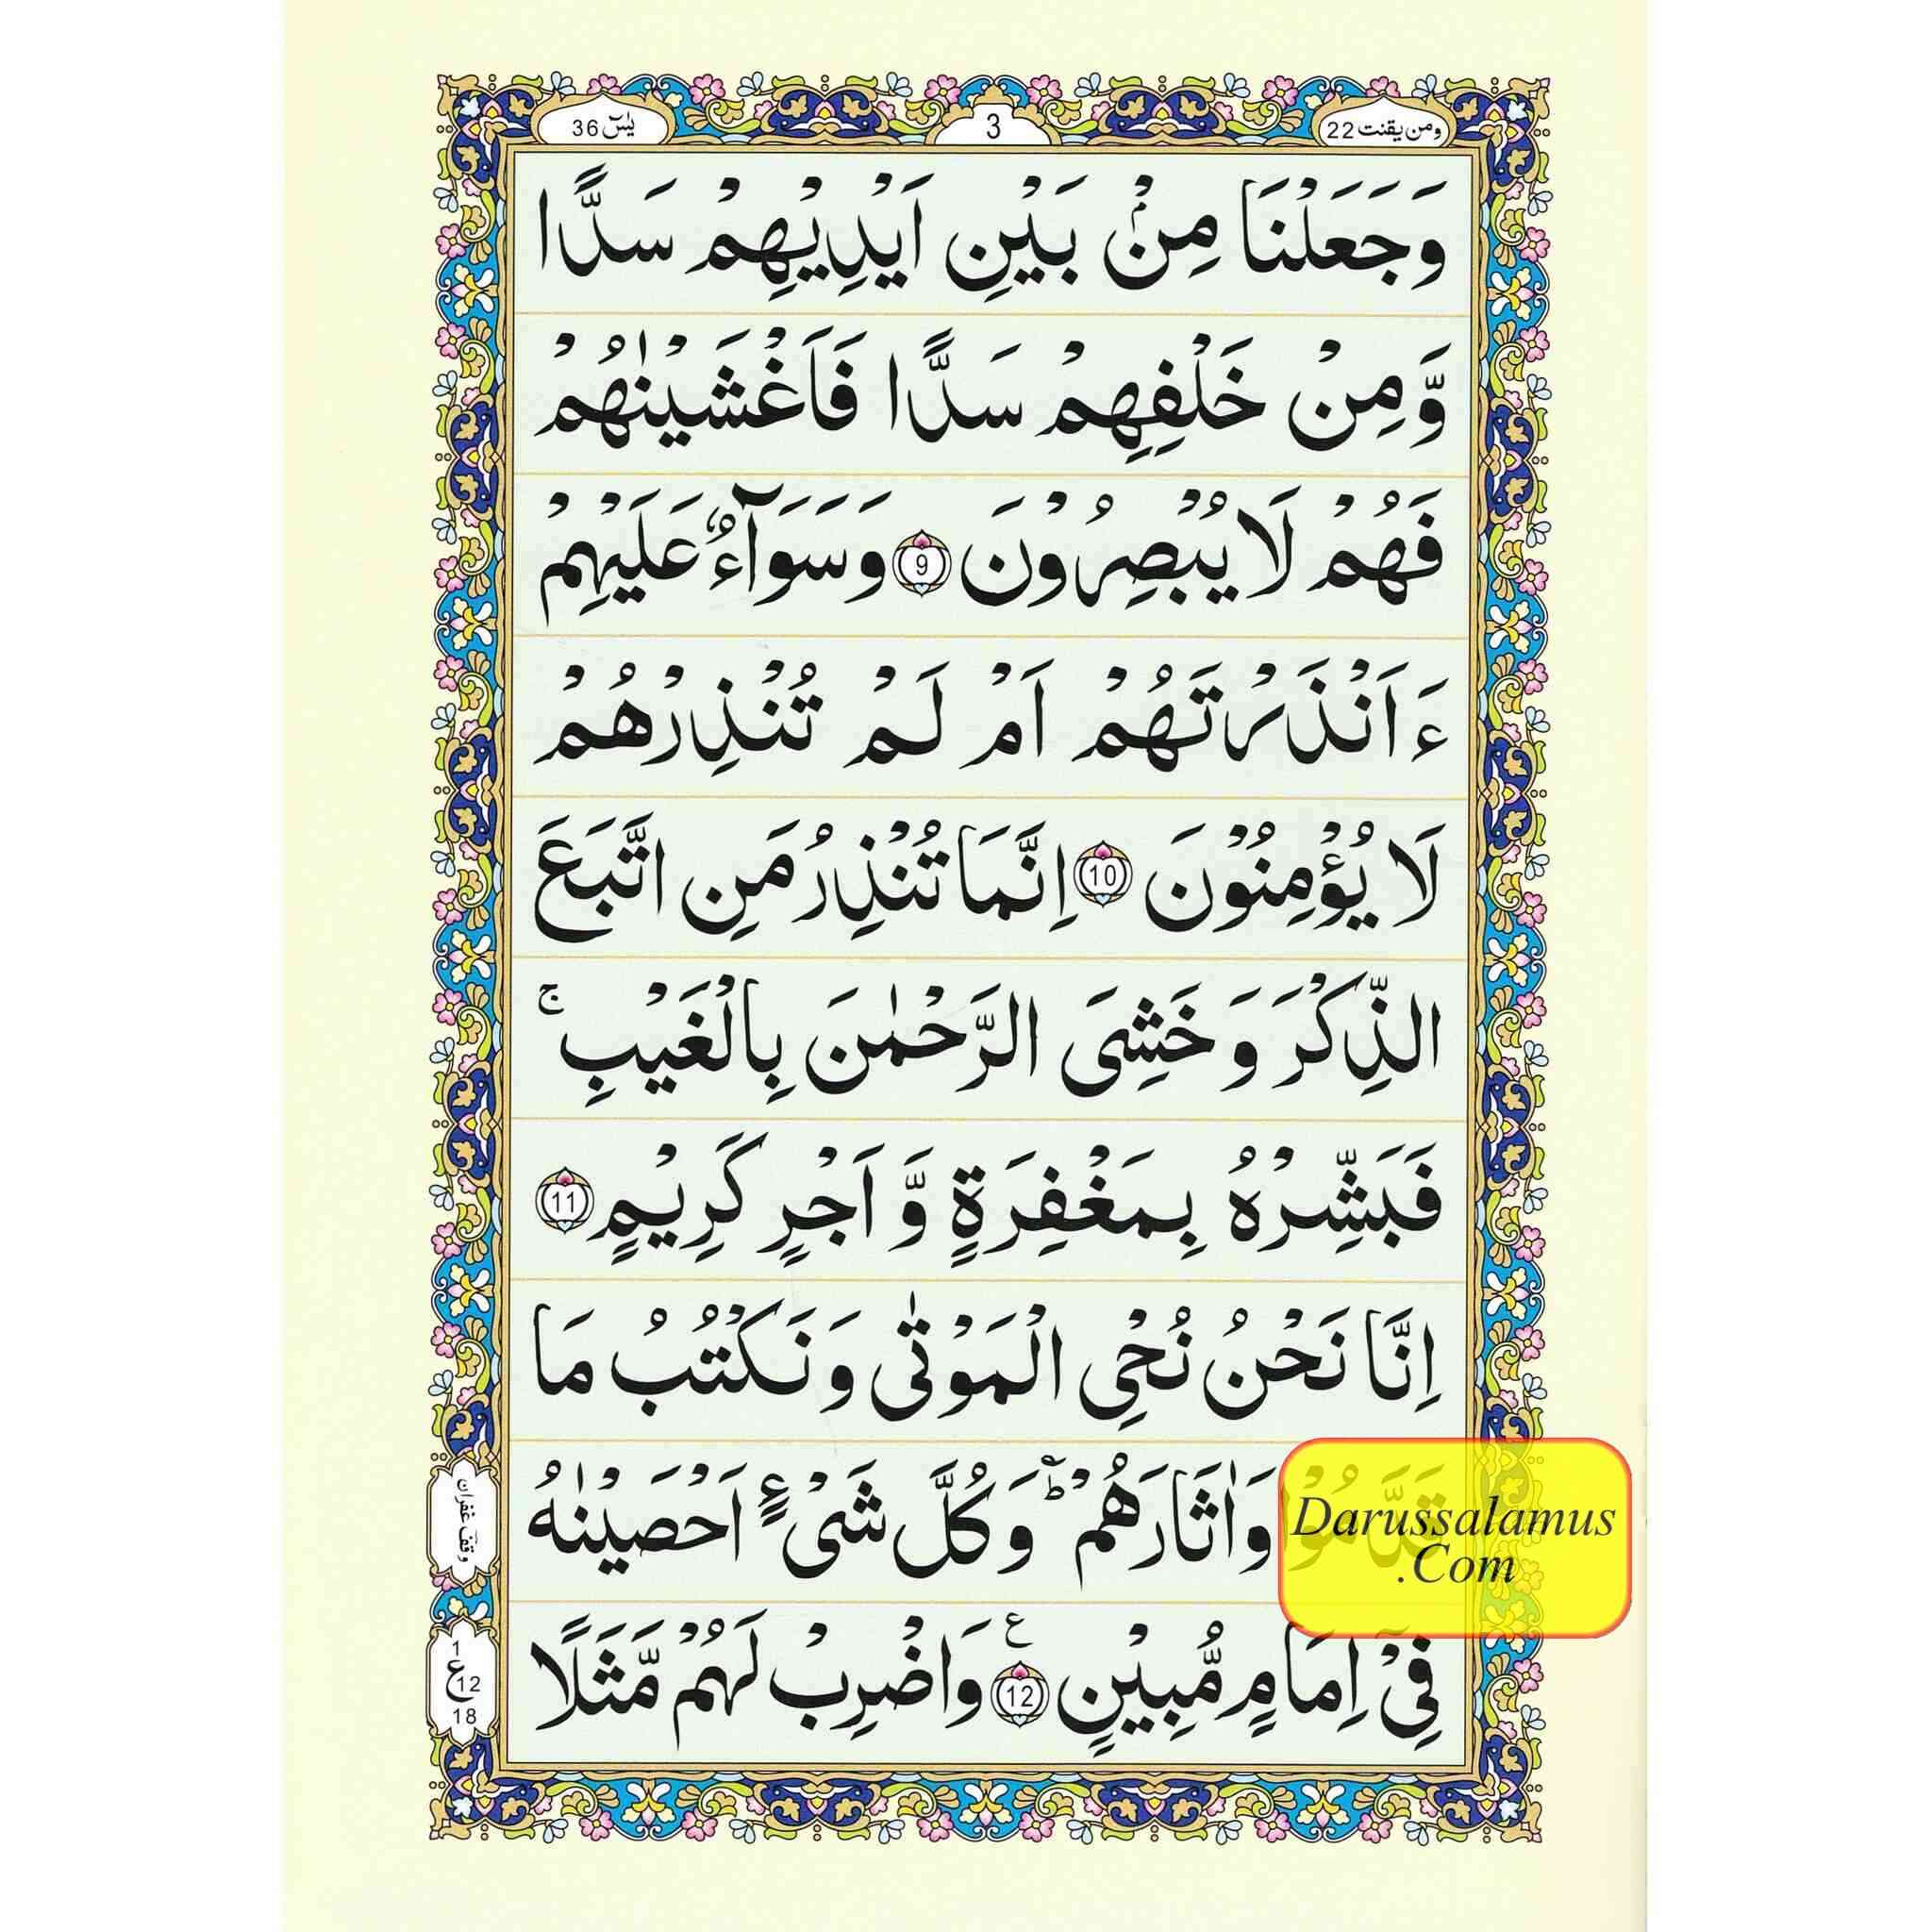 ومن يقنت 22
3
يٰسٓ 36
وَجَعَلْنَا مِنْۢ بَيْنِ اَيْدِيْهِمْ سَدًّا
وَّمِنْ خَلْفِهِمْ سَدًّا فَاَغْشَيْنٰهُمْ
فَهُمْ لَا يُبْصِرُوْنَ 9 وَسَوَآءٌ عَلَيْهِمْ
ءَاَنْذَرْتَهُمْ اَمْ لَمْ تُنْذِرْهُمْ
لَا يُؤْمِنُوْنَ 10 اِنَّمَا تُنْذِرُ مَنِ اتَّبَعَ
الذِّكْرَ وَ خَشِىَ الرَّحْمٰنَ بِالْغَيْبِ ۚ
فَبَشِّرْهُ بِمَغْفِرَةٍ وَّ اَجْرٍ كَرِيْمٍ 11
اِنَّا نَحْنُ نُحْىِ الْمَوْتٰى وَ نَكْتُبُ مَا
قَدَّمُوْا وَاٰثَارَهُمْ ؕ وَكُلَّ شَىْءٍ اَحْصَيْنٰهُ
فِىْۤ اِمَامٍ مُّبِيْنٍ 12 ع وَاضْرِبْ لَهُمْ مَّثَلًا
وقف غفران
1
ع 12
18
Darussalamus
.Com